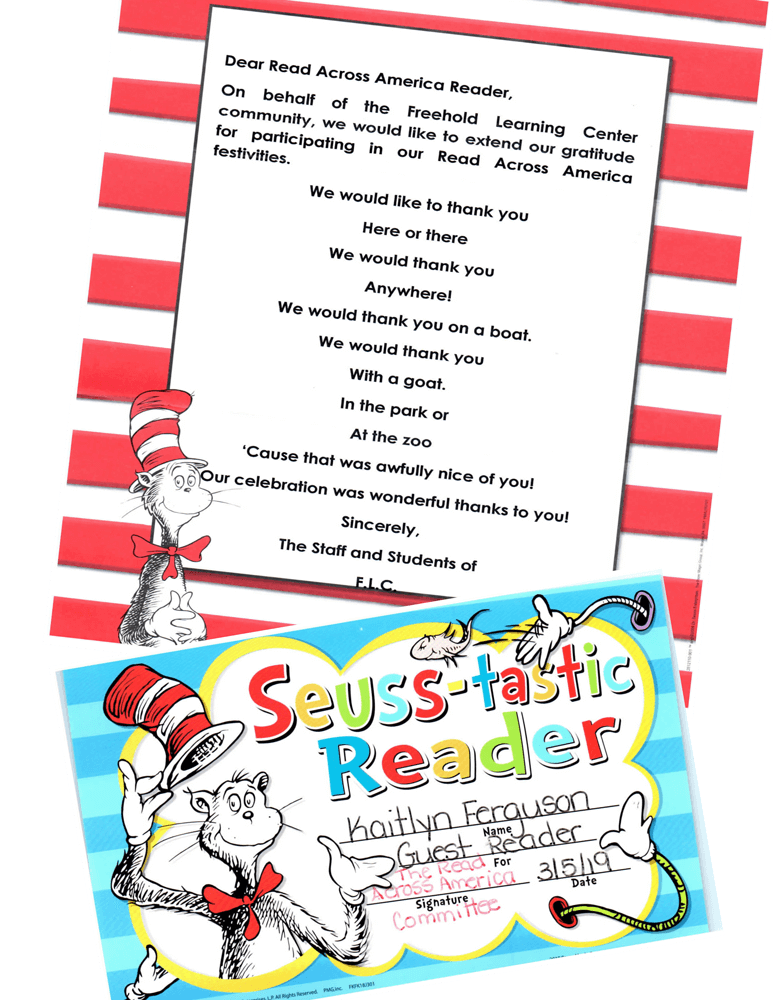 Dear Read Across America Reader,
On behalf of the Freehold Learning Center
community, we would like to extend our gratitude
for participating in our Read Across America
festivities.
We would like to thank you
Here or there
We would thank you
Anywhere!
We would thank you on a boat.
We would thank you
With a goat.
In the park or
At the zoo
‘Cause that was awfully nice of you!
Our celebration was wonderful thanks to you!
Sincerely,
The Staff and Students of
F.L.C.
Seuss-tastic
Reader
Kaitlyn Ferguson
Name
Guest Reader
For
The Read
Across America
Committee
Signature
3/5/19
Date
L.P. All Rights Reserved. PMG,Inc.